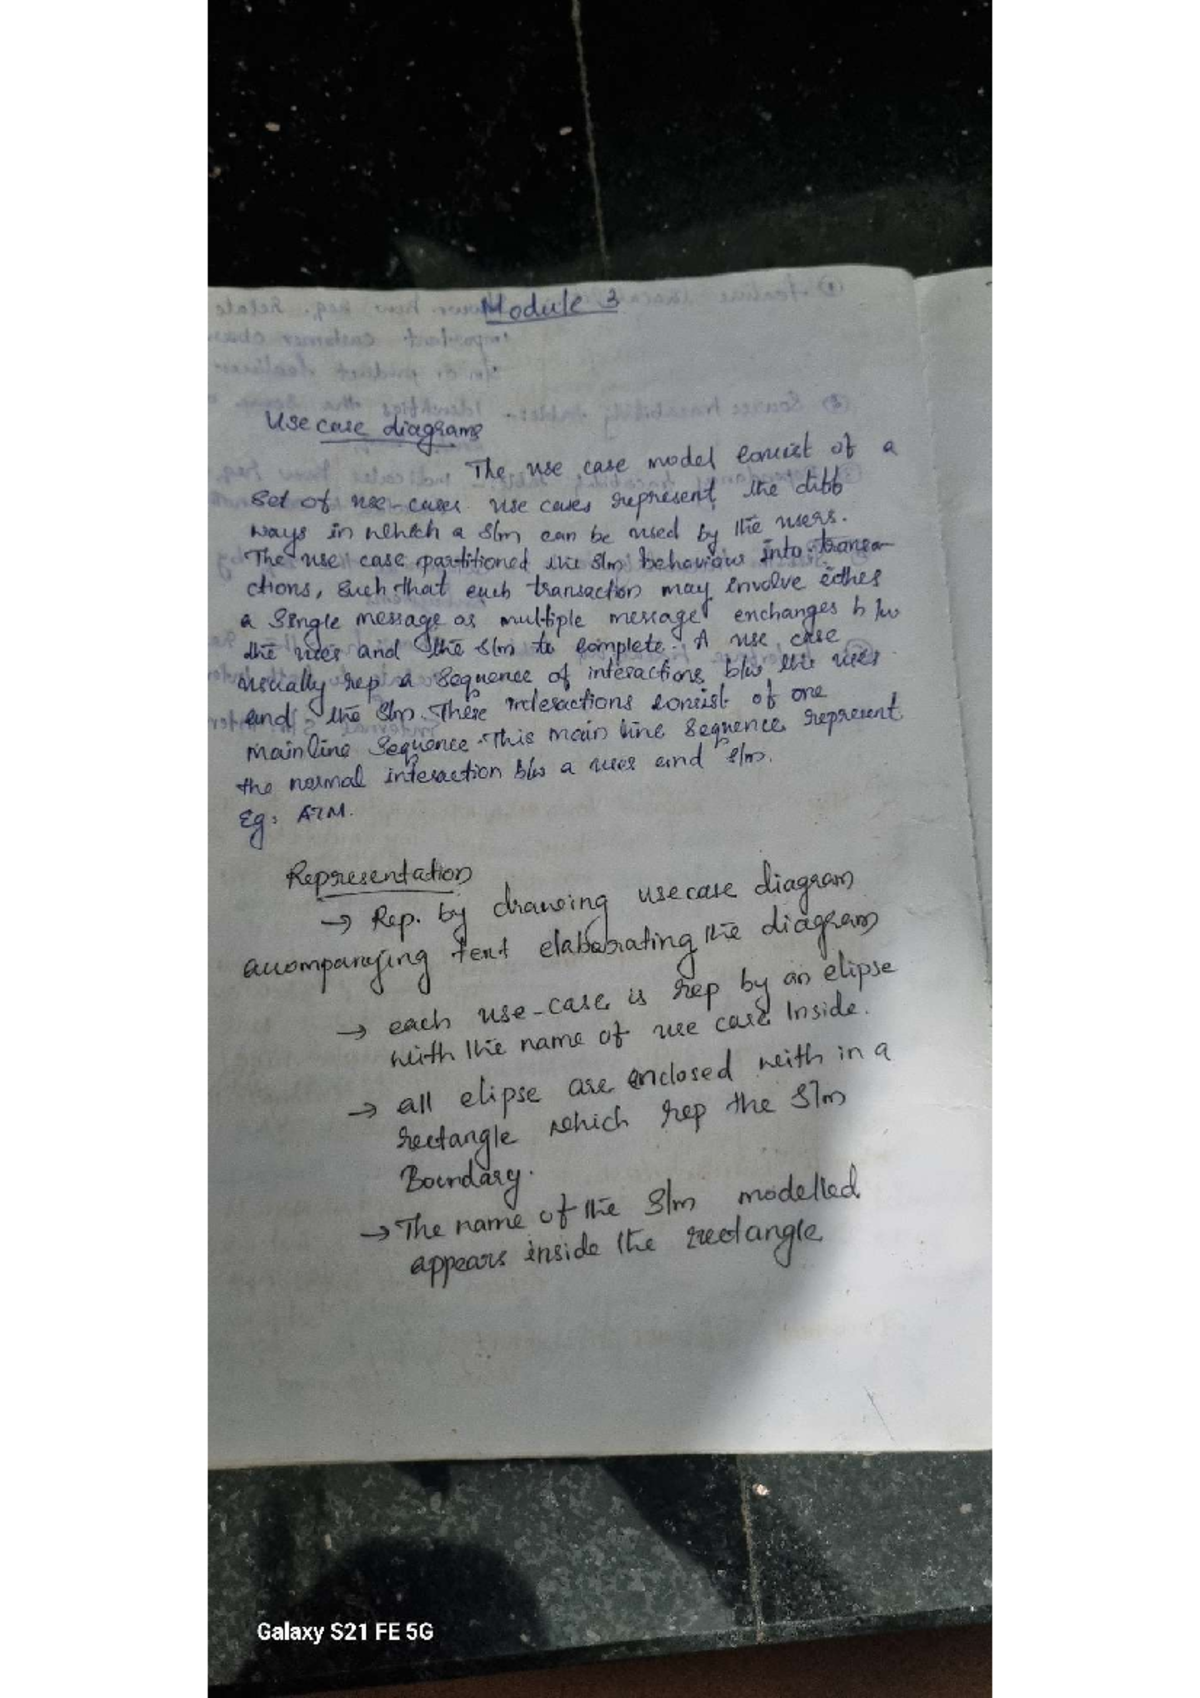 Module 3
Use case diagrams
The use case model consist of a
set of use-cases. use cases represent the diff
ways in which a s/m can be used by the users.
The use case partitioned the s/m behaviour into transa-
ctions, such that each transaction may involve either
a single message or multiple message exchanges b/w
the user and the s/m to complete. A use case
usually rep a sequence of interactions b/w the user
and the s/m. These interactions consist of one
mainline sequence. This main line sequence represent
the normal interaction b/w a user and s/m.
Eg: ATM.
Representation
→ Rep. by drawing usecase diagram
accompanying text elaborating the diagram
→ each use-case is rep by an elipse
with the name of use case Inside.
→ all elipse are enclosed with in a
rectangle which rep the S/m
Boundary.
→ The name of the S/m modelled
appears inside the rectangle
Galaxy S21 FE 5G